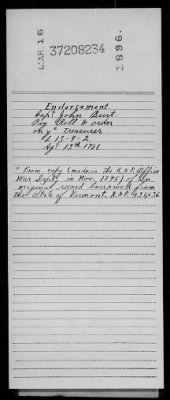 MAR 16
37208234
1896.
Endorsement
Capt. John Burt.
Pay Roll & order
on yᵉ Treasurer
£ 15-9-2
13th 1781
* From copy (made in the R. & P. Office
War Dept. in Nov. 1895) of an
original record borrowed from
the State of Vermont. R. & P. 436636